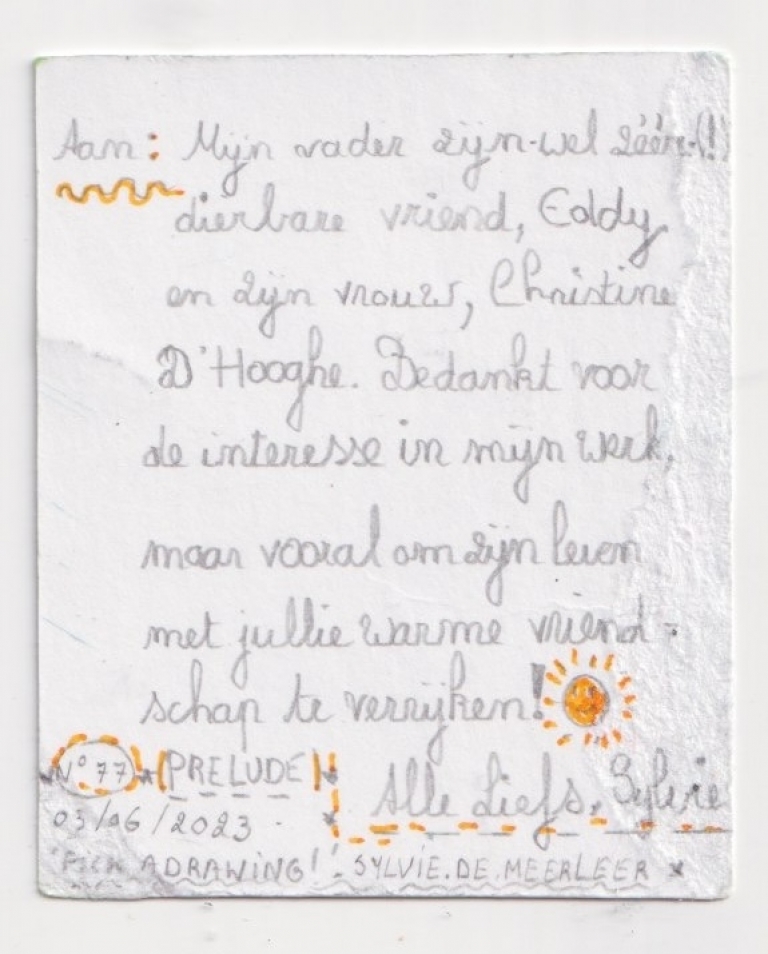 Aan: Mijn vader zijn-wel zéér-(!)
dierbare vriend, Eddy
en zijn vrouw, Christine
D'Hooghe. Bedankt voor
de interesse in mijn werk,
maar vooral om zijn leven
met jullie warme vriend-
schap te verrijken!
N° 77 * (PRELUDE) *
03/06/2023
Alle Liefs, Sylvie
'PICK A DRAWING!' - SYLVIE.DE.MEERLEER *